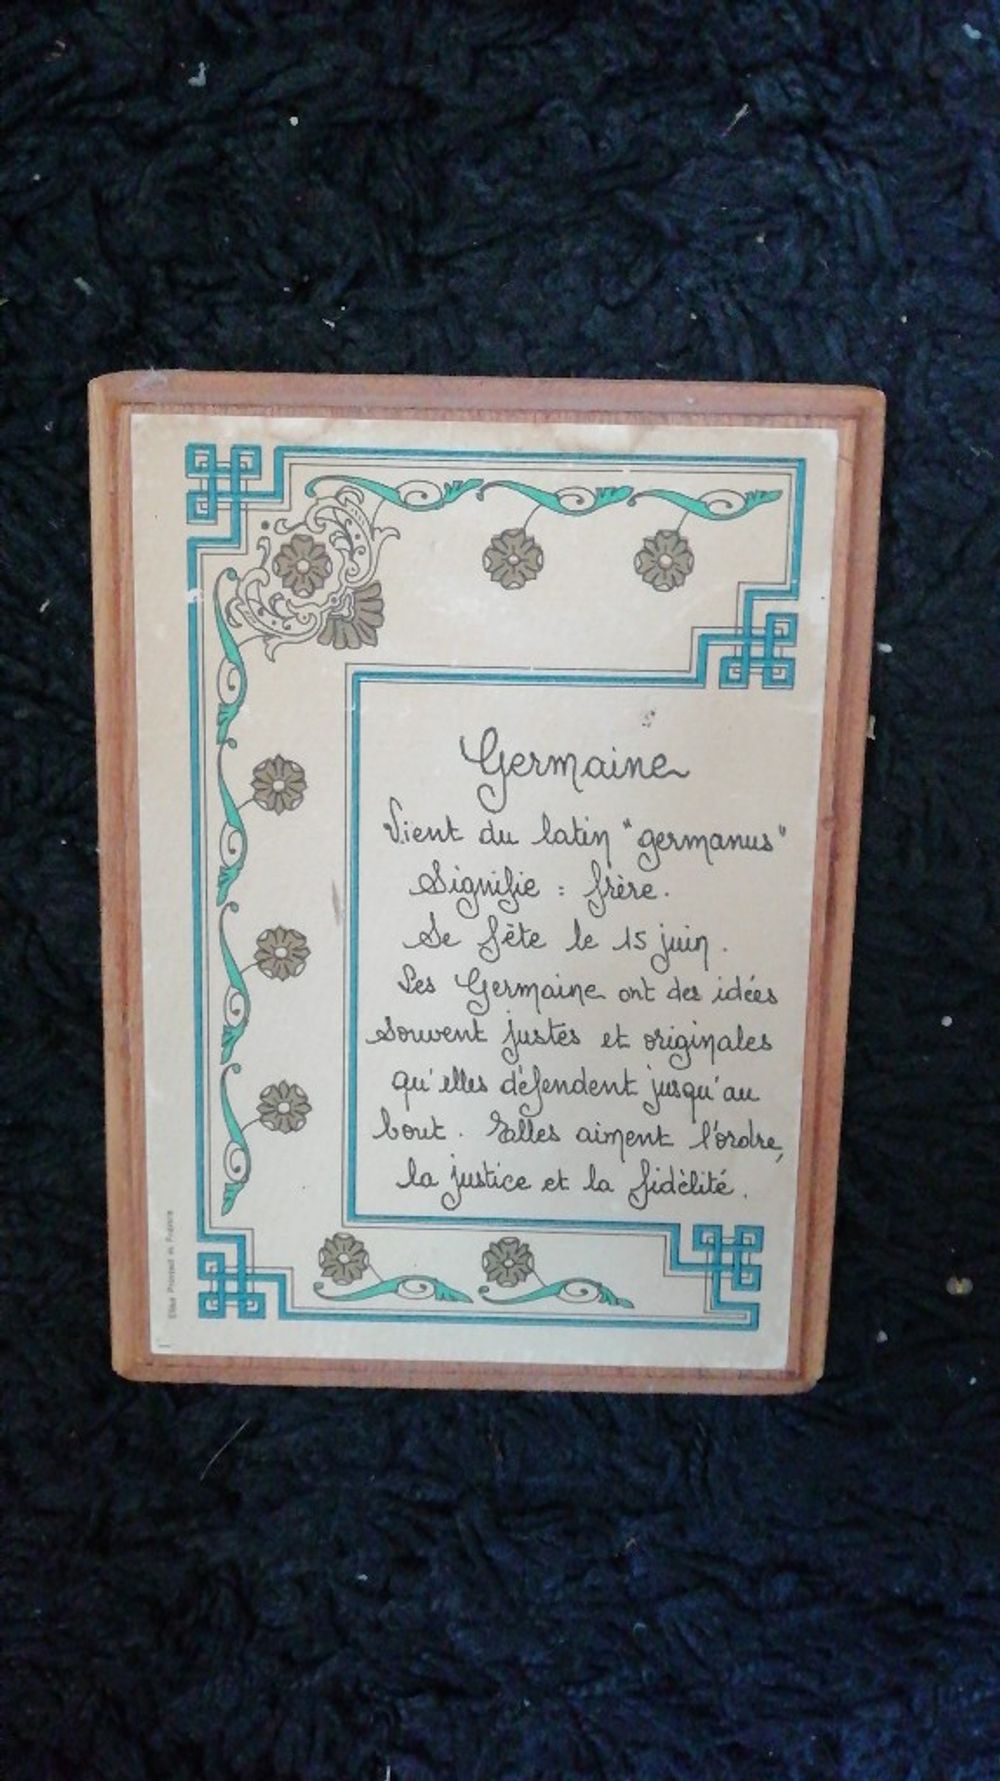 Germaine
Vient du latin "germanus"
Signifie : frère.
Se fête le 15 juin.
Les Germaine ont des idées
souvent justes et originales
qu'elles défendent jusqu'au
bout. Elles aiment l'ordre,
la justice et la fidélité.
Printed in France